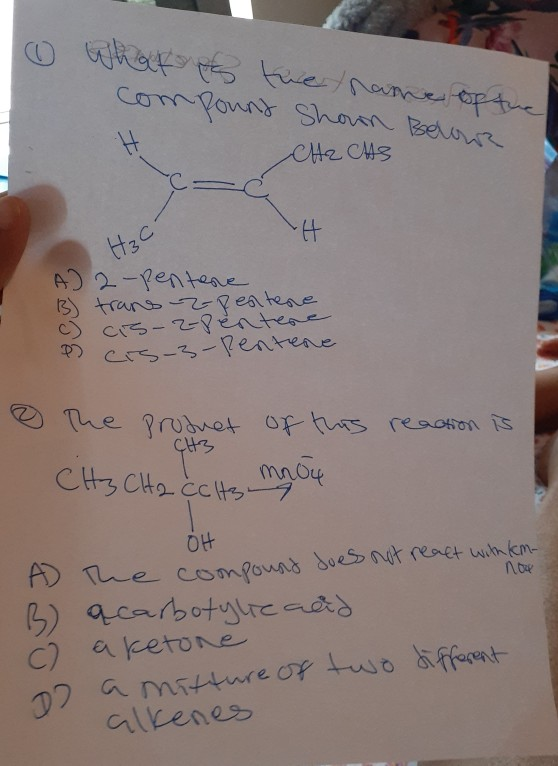 ① What is the name of the
compound shown Below
H
CH2 CH3
C = C
H3C
H
A) 2-pentene
B) trans-2-pentene
C) cis-2-pentene
D) cis-3-pentene
② The product of this reaction is
CH3
CH3 CH2 CCH3 → MnO4-
OH
A) The compound does not react with KM-
nO4
B) a carbotylic acid
C) a ketone
D) a mitture of two different
alkenes